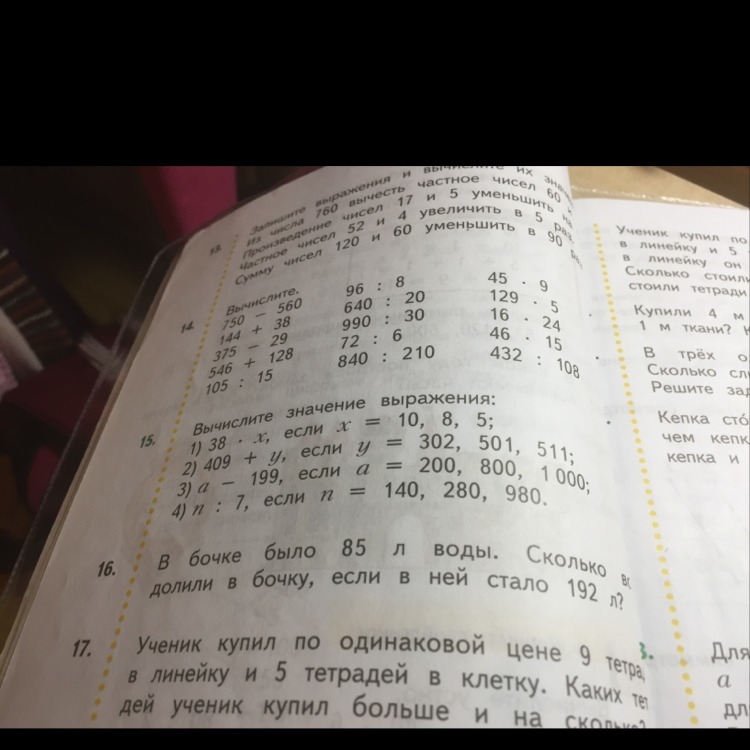 13. Запишите выражения и вычислите их
Из числа 760 вычесть частное чисел 60
Произведение чисел 17 и 5 уменьшить на
Частное чисел 52 и 4 увеличить в 5 раз
Сумму чисел 120 и 60 уменьшить в 90
14. Вычислите.
750 − 560 96 : 8 45 · 9
144 + 38 640 : 20 129 · 5
375 − 29 990 : 30 16 · 24
546 + 128 72 : 6 46 · 15
105 : 15 840 : 210 432 : 108
15. Вычислите значение выражения:
1) 38 · x, если x = 10, 8, 5;
2) 409 + y, если y = 302, 501, 511;
3) a − 199, если a = 200, 800, 1 000;
4) n : 7, если n = 140, 280, 980.
16. В бочке было 85 л воды. Сколько
долили в бочку, если в ней стало 192 л?
17. Ученик купил по одинаковой цене 9 тетра
в линейку и 5 тетрадей в клетку. Каких тет
дей ученик купил больше и на сколько?
Ученик купил по
в линейку и 5
в линейку он
Сколько стоили
стоили тетради
Купили 4 м
1 м ткани?
В трёх
Сколько
Решите зад
Кепка сто́
чем кепк
кепка и
3. Для
a
дл